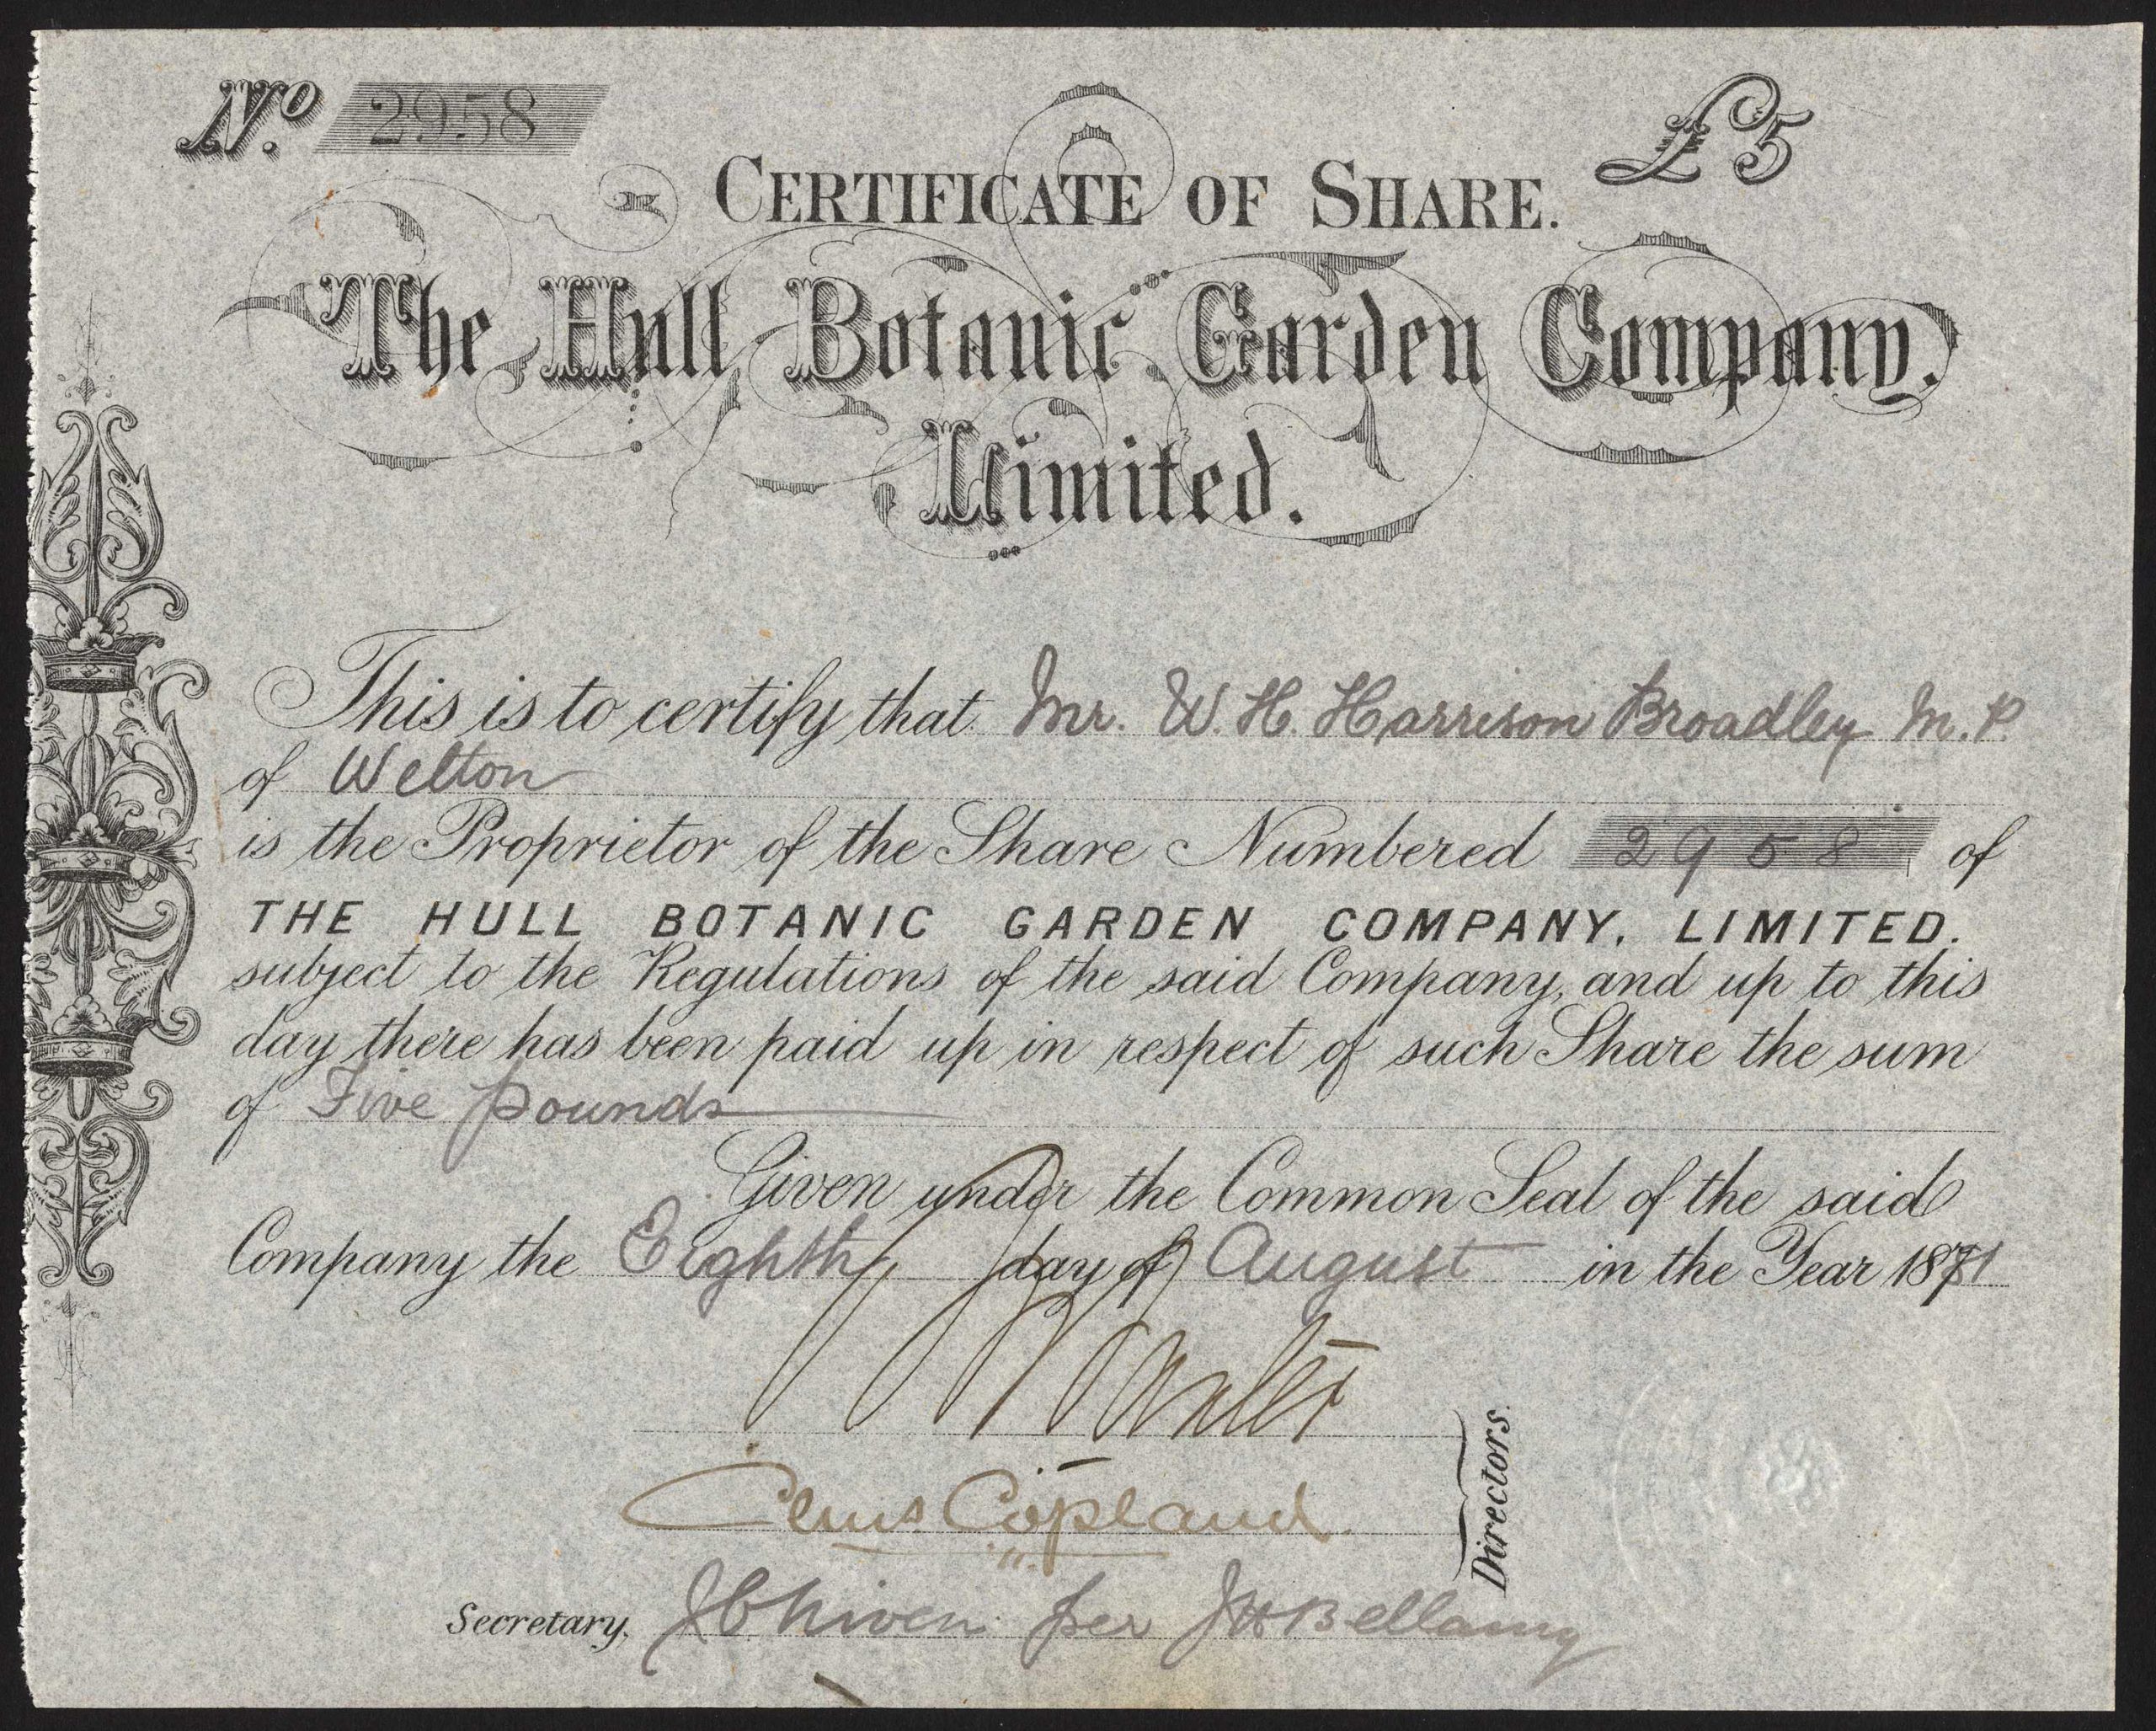 No. 2958
£5
CERTIFICATE OF SHARE.
The Hull Botanic Garden Company.
Limited.
This is to certify that Mr. W. H. Harrison Broadley M.P.
of Welton
is the Proprietor of the Share Numbered 2958 of
THE HULL BOTANIC GARDEN COMPANY, LIMITED.
subject to the Regulations of the said Company, and up to this
day there has been paid up in respect of such Share the sum
of Five pounds
Given under the Common Seal of the said
Company the Eighth day of August in the Year 1881
Copland
Directors.
Secretary, J C Niven per J W Bellamy